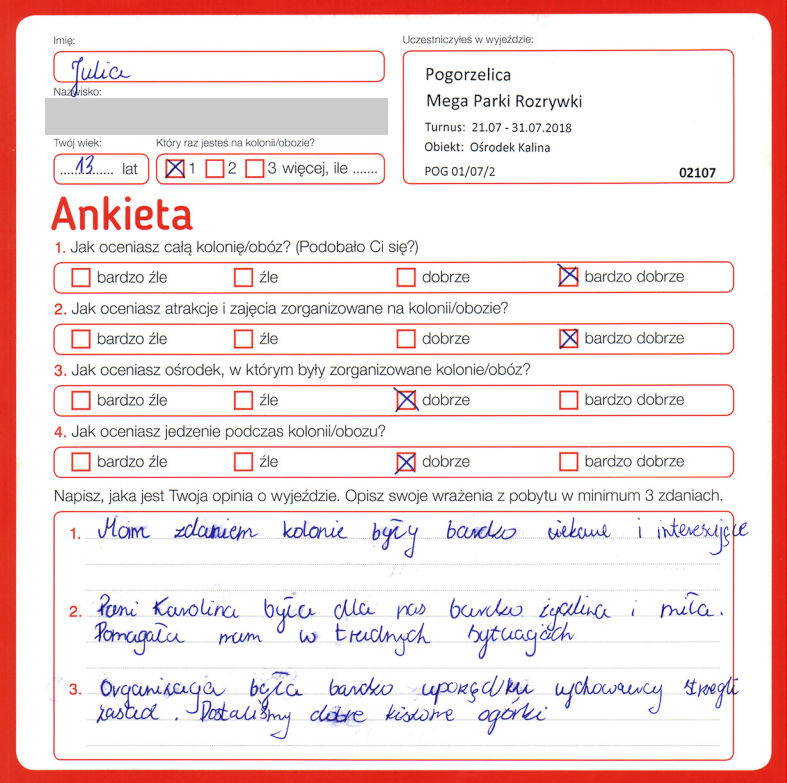 Imię:
Julia
Nazwisko:
Twój wiek:
13 lat
Który raz jesteś na kolonii/obozie?
1 2 3 więcej, ile .......
Uczestniczyłeś w wyjeździe:
Pogorzelica
Mega Parki Rozrywki
Turnus: 21.07 - 31.07.2018
Obiekt: Ośrodek Kalina
POG 01/07/2 02107
Ankieta
1. Jak oceniasz całą kolonię/obóz? (Podobało Ci się?)
bardzo źle źle dobrze bardzo dobrze
2. Jak oceniasz atrakcje i zajęcia zorganizowane na kolonii/obozie?
bardzo źle źle dobrze bardzo dobrze
3. Jak oceniasz ośrodek, w którym były zorganizowane kolonie/obóz?
bardzo źle źle dobrze bardzo dobrze
4. Jak oceniasz jedzenie podczas kolonii/obozu?
bardzo źle źle dobrze bardzo dobrze
Napisz, jaka jest Twoja opinia o wyjeździe. Opisz swoje wrażenia z pobytu w minimum 3 zdaniach.
1. Moim zdaniem kolonie były bardzo ciekawe i interesujące
2. Pani Karolina była dla nas bardzo i miła.
Pomagała nam w trudnych sytuacjach
3. Organizacja była bardzo wychowawcy strzegli
zasad. Dostaliśmy dobre kiszone ogórki